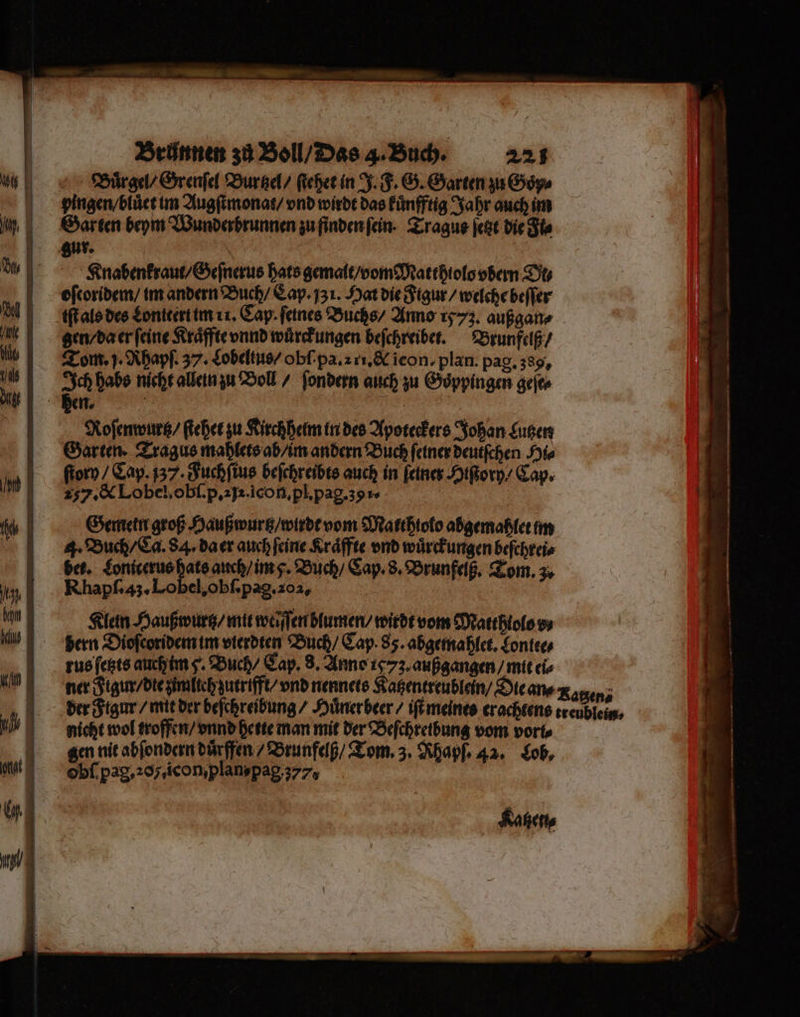 Brünnen zů Boll/Das 4. Buch. 221
Bůrgel/Grensel Burtzel/ stehet in J. F. G. Garten zu Göp⸗
pingen/blůet im Augstmonat/ vnd wirdt das kůnfftig Jahr auch im
Garten beym Wunderbrunnen zu finden sein. Tragus setzt die Fi⸗
gur.
Knabenkraut/Gesnerus hats gemalt/vom Matthiolo vbern Di⸗
oscoridem/ im andern Buch/ Cap. 131. Hat die Figur / welche besser
ist als des Loniceri im 11. Cap. seines Buchs/ Anno 1573. außgan⸗
gen/da er seine Kråffte vnnd wůrckungen beschreibet. Brunfelß/
Tom. 1. Rhaps. 37. Lobelius/ obs. pa. 211, & icon. plan. pag. 389,
Ich habs nicht allein zu Boll / sondern auch zu Göppingen gese⸗
hen.
Rosenwurtz/ stehet zu Kirchheim in des Apoteckers Johan Lutzen
Garten. Tragus mahlets ab/im andern Buch seiner deutschen Hi⸗
story / Cap. 137. Fuchsius beschreibts auch in seiner History/ Cap.
257. & Lobel. obs. p. 212. icon, pl, pag. 391.
Gemein groß Haußwurtz/wirdt vom Matthiolo abgemahlet im
4. Buch/Ca. 84. da er auch seine Kråffte vnd wůrckungen beschrei⸗
bet. Lonicerus hats auch/ im 5. Buch/ Cap. 8. Brunfelß. Tom. 3.
Rhaps. 43. Lobel, obs. pag. 202,
Klein Haußwurtz/ mit weissen blumen/ wirdt vom Matthiolo v⸗
bern Dioscoridem im vierdten Buch/ Cap. 85. abgemahlet. Lonice⸗
rus setzts auch im 5. Buch/ Cap. 8. Anno 1573. außgangen / mit ei⸗
ner Figur/die zimlich zutrifft/ vnd nennets Katzentreublein/ Die an⸗
der Figur / mit der beschreibung / Hůnerbeer / ist meines erachtens
nicht wol troffen/ vnnd hette man mit der Beschreibung vom vori⸗
gen nit absondern důrffen / Brunfelß/ Tom. 3. Rhaps. 42. Lob,
obs. pag, 205, icon, plan, pag. 377,
Katzen⸗
treublein.
Katzen⸗